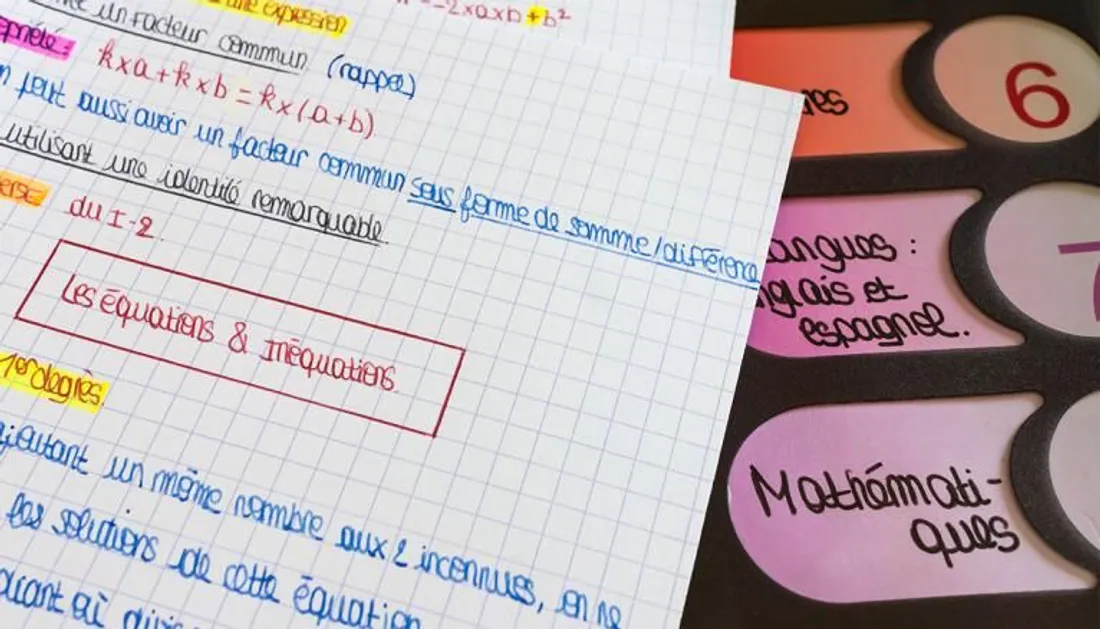 une expression
-2×a×b + b²
un facteur commun (rappel)
k×a+k×b=k×(a+b)
peut aussi avoir un facteur commun sous forme de somme/différenc
utilisant une identité remarquable
du I-2
Les équations & Inéquations
1er degrès
ajoutant un même nombre aux 2 inconnues, en ne
les solutions de cette équation
6
res
angues :
nglais et
espagnol.
7
Mathémati-
ques